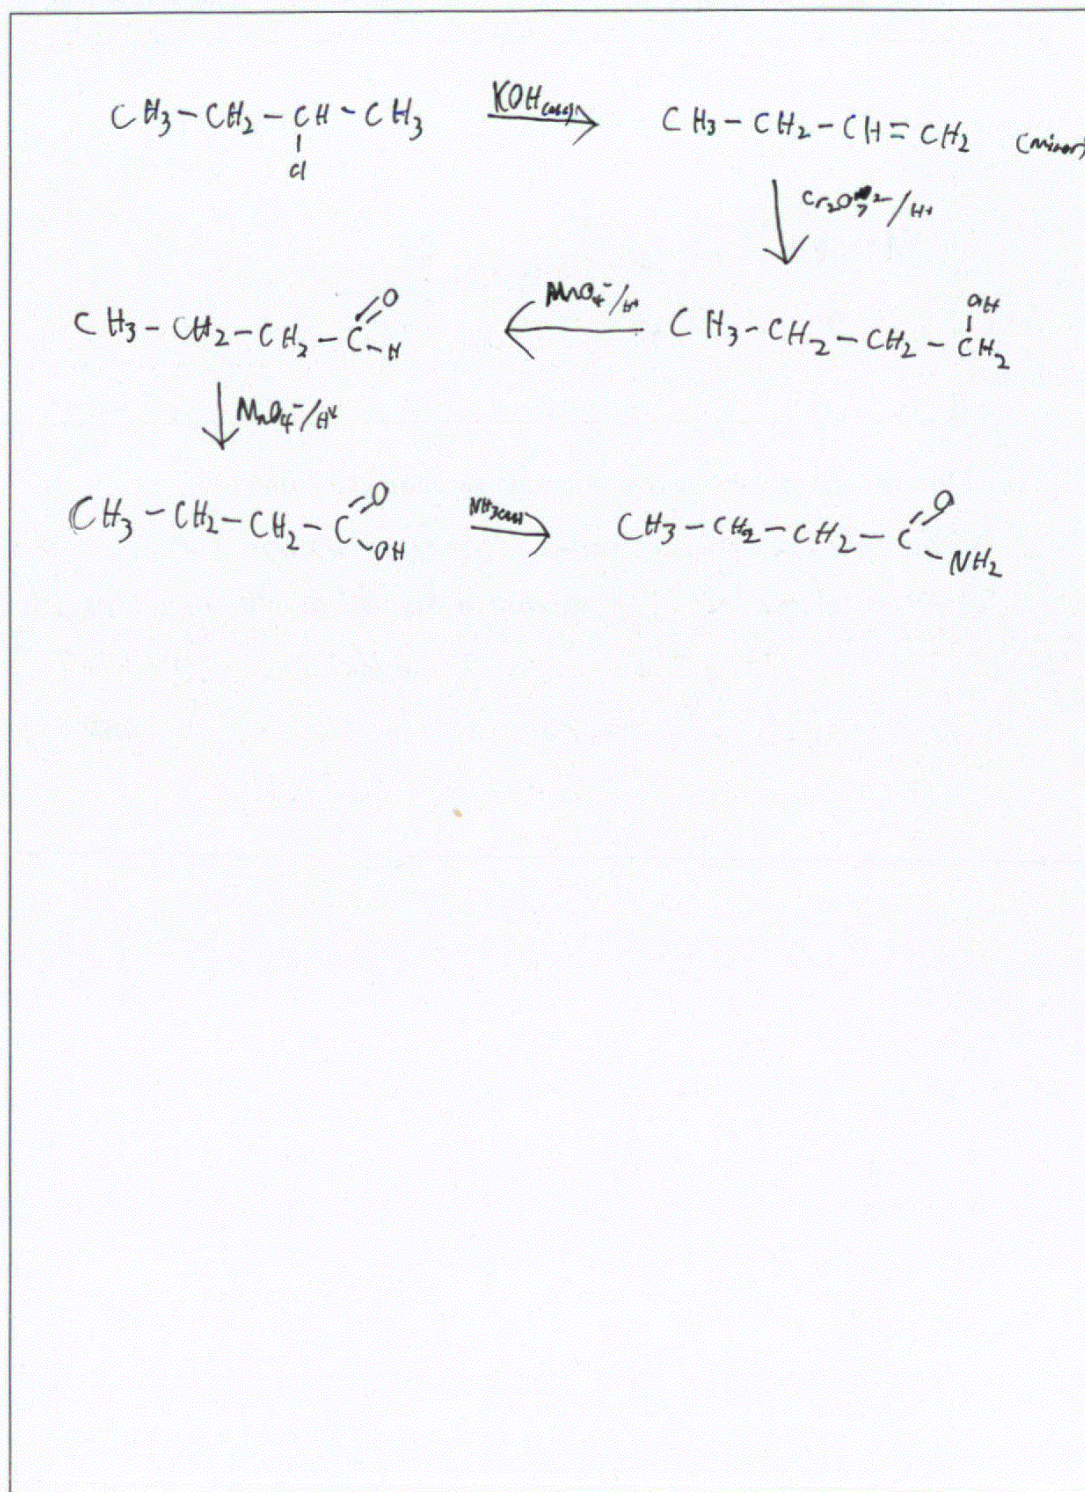 CH3-CH2-CH-CH3 KOH(alc) CH3-CH2-CH=CH2 (minor)
Cl
Cr2O7 2-/H+
CH3-CH2-CH2-C=O-H MnO4-/H+ CH3-CH2-CH2-CH2
OH
MnO4-/H+
CH3-CH2-CH2-C=O-OH NH3 CH3-CH2-CH2-C=O-NH2